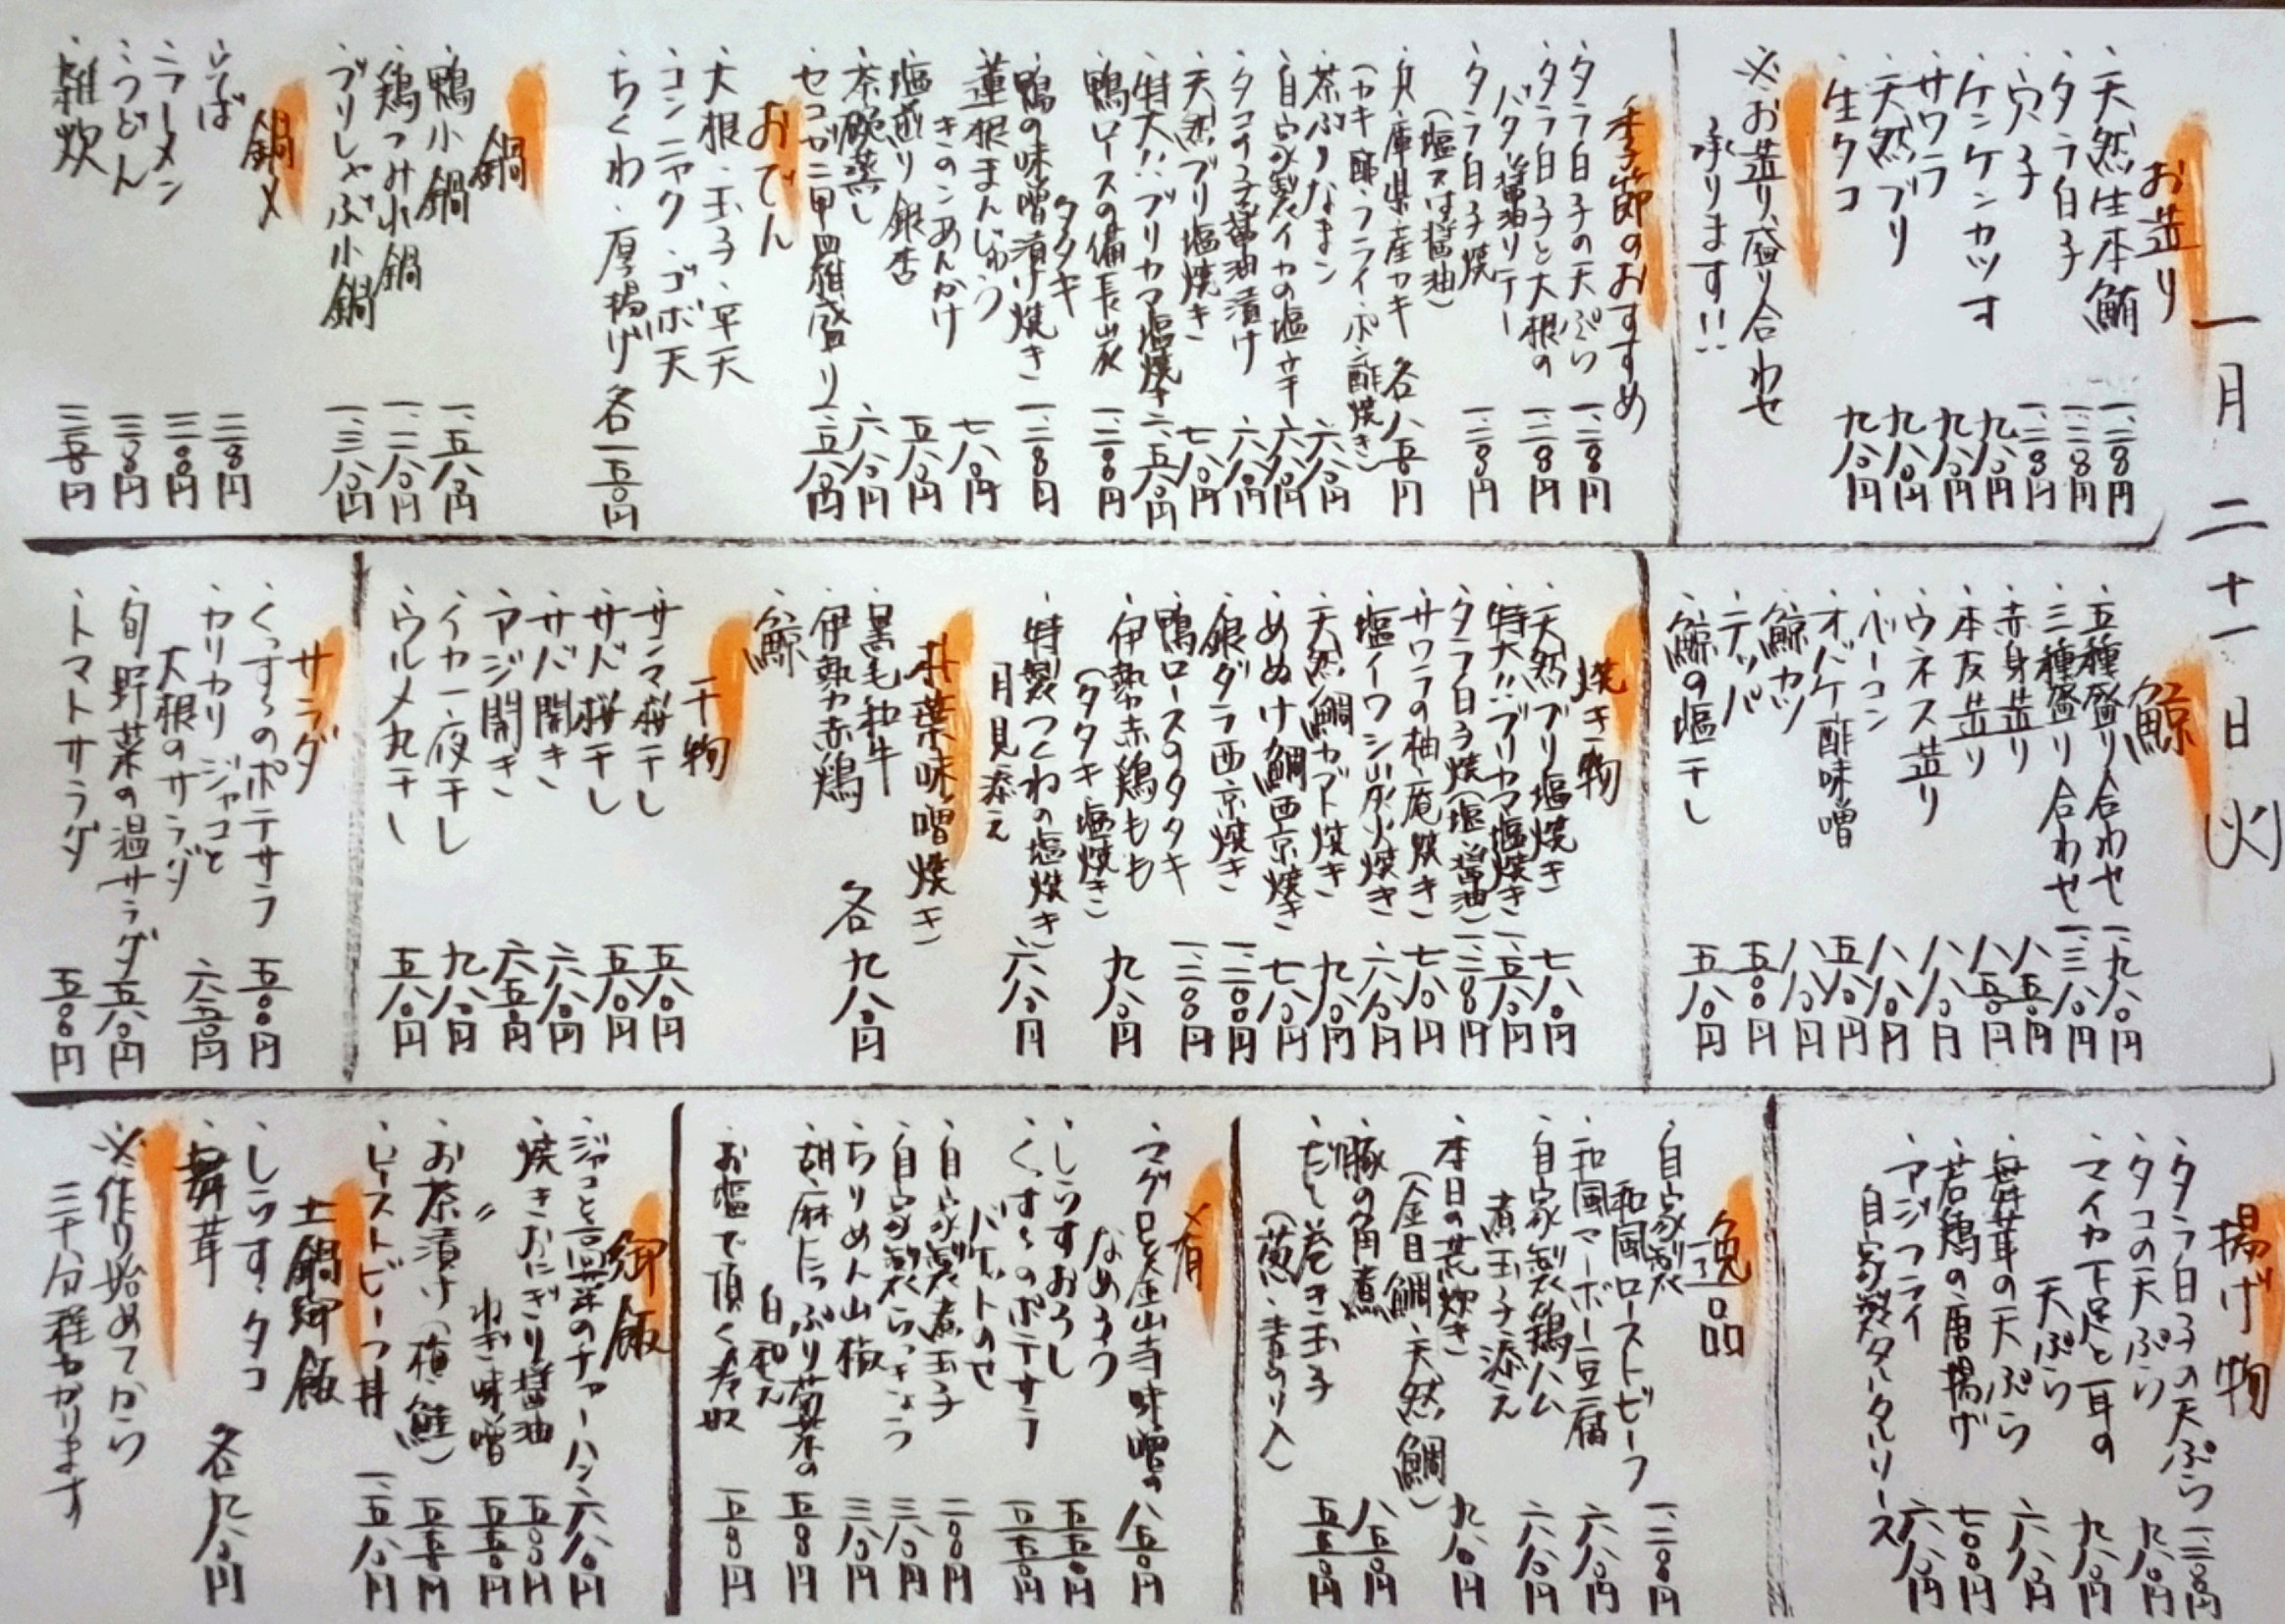 一月二十一日(火)
お造り
・天然生本鮪 一、二〇〇円
・タラ白子 一、二〇〇円
・穴子 一、二〇〇円
・ケンケンカツオ 九八〇円
・サワラ 九八〇円
・天然ブリ 九八〇円
・生タコ 九八〇円
※お造り盛り合わせ
承ります!!
季節のおすすめ
・タラ白子の天ぷら 一、二〇〇円
・タラ白子と大根の
バター醤油ソテー 一、二〇〇円
・タラ白子焼
(塩又は醤油) 一、二〇〇円
・兵庫県産カキ 各八五〇円
(カキ酢・フライ・ポン酢焼き)
・茶ぶりなまこ 六八〇円
・自家製イカの塩辛 六八〇円
・タコの子醤油漬け 六八〇円
・天然ブリ塩焼き 七八〇円
・特大!!ブリカマ塩焼き 一、五八〇円
・鴨ロースの備長炭
タタキ 一、二〇〇円
・鴨の味噌漬け焼き 一、二〇〇円
・蓮根まんじゅう
きのこあんかけ 七八〇円
・塩煎り銀杏 五八〇円
・茶碗蒸し 六八〇円
・セコガニ甲羅盛り 一、五八〇円
おでん
・大根・玉子・平天
・コンニャク・ゴボ天
・ちくわ・厚揚げ 各一五〇円
鍋
・鴨小鍋 一、五八〇円
・鶏つみれ小鍋 一、二八〇円
・ブリしゃぶ小鍋 一、三八〇円
鍋〆
・そば 二〇〇円
・ラーメン 三〇〇円
・うどん 三〇〇円
・雑炊 三五〇円
鯨
・五種盛り合わせ 一、九八〇円
・三種盛り合わせ 一、三八〇円
・赤身造り 八五〇円
・本皮造り 八五〇円
・ウネス造り 八八〇円
・ベーコン 八八〇円
・オバケ酢味噌 五八〇円
・鯨カツ 八八〇円
・テッパ 五〇〇円
・鯨の塩干し 五八〇円
焼き物
・天然ブリ塩焼き 七八〇円
・特大!!ブリカマ塩焼き 一、五八〇円
・タラ白子焼(塩・醤油) 一、二〇〇円
・サワラの柚庵焼き 七八〇円
・塩イワシ炭火焼き 六八〇円
・天然鯛カブト焼き 九八〇円
・めぬけ鯛西京焼き 七八〇円
・銀ダラ西京焼き 一、二〇〇円
・鴨ロースのタタキ 一、二〇〇円
・伊勢赤鶏もも
(タタキ・塩焼き) 九八〇円
・特製つくねの塩焼き
月見添え 六八〇円
朴葉味噌焼き
・黒毛和牛
・伊勢赤鶏 各九八〇円
・鯨
干物
・サンマ桜干し 五八〇円
・サバ桜干し 五八〇円
・サバ開き 六八〇円
・アジ開き 六五〇円
・イカ一夜干し 九八〇円
・ウルメ丸干し 五八〇円
サラダ
・くっすぅのポテサラ 五〇〇円
・カリカリジャコと
大根のサラダ 六五〇円
・旬野菜の温サラダ 五八〇円
・トマトサラダ 五〇〇円
揚げ物
・タラ白子の天ぷら 一、二〇〇円
・タコの天ぷら 九八〇円
・マイカ下足と耳の
天ぷら 九八〇円
・舞茸の天ぷら 六八〇円
・若鶏の唐揚げ 七〇〇円
・アジフライ
自家製タルタルソース 六八〇円
逸品
・自家製
和風ローストビーフ 一、二〇〇円
・和風マーボー豆腐 六八〇円
・自家製鶏ハム
煮玉子添え 六八〇円
・本日の荒炊き
(金目鯛・天然鯛) 九八〇円
・豚の角煮 八五〇円
・だし巻き玉子
(葱・青のり入) 五五〇円
肴
・マグロと金山寺味噌の
なめろう 八五〇円
・しらすおろし 五五〇円
・くっすぅのポテサラ
バケットのせ 五五〇円
・自家製煮玉子 二〇〇円
・自家製らっきょう 三八〇円
・ちりめん山椒 三八〇円
・胡麻たっぷり菊菜の
白和え 五〇〇円
・お塩で頂く冷奴 五〇〇円
御飯
・ジャコと高菜のチャーハン 六八〇円
・焼きおにぎり醤油 五〇〇円
・〃 ねぎ味噌 五五〇円
・お茶漬け(梅・鮭) 五五〇円
・ローストビーフ丼 一、五八〇円
土鍋御飯
・しらす・タコ
・舞茸 各九八〇円
※作り始めてから
三十分程かかります